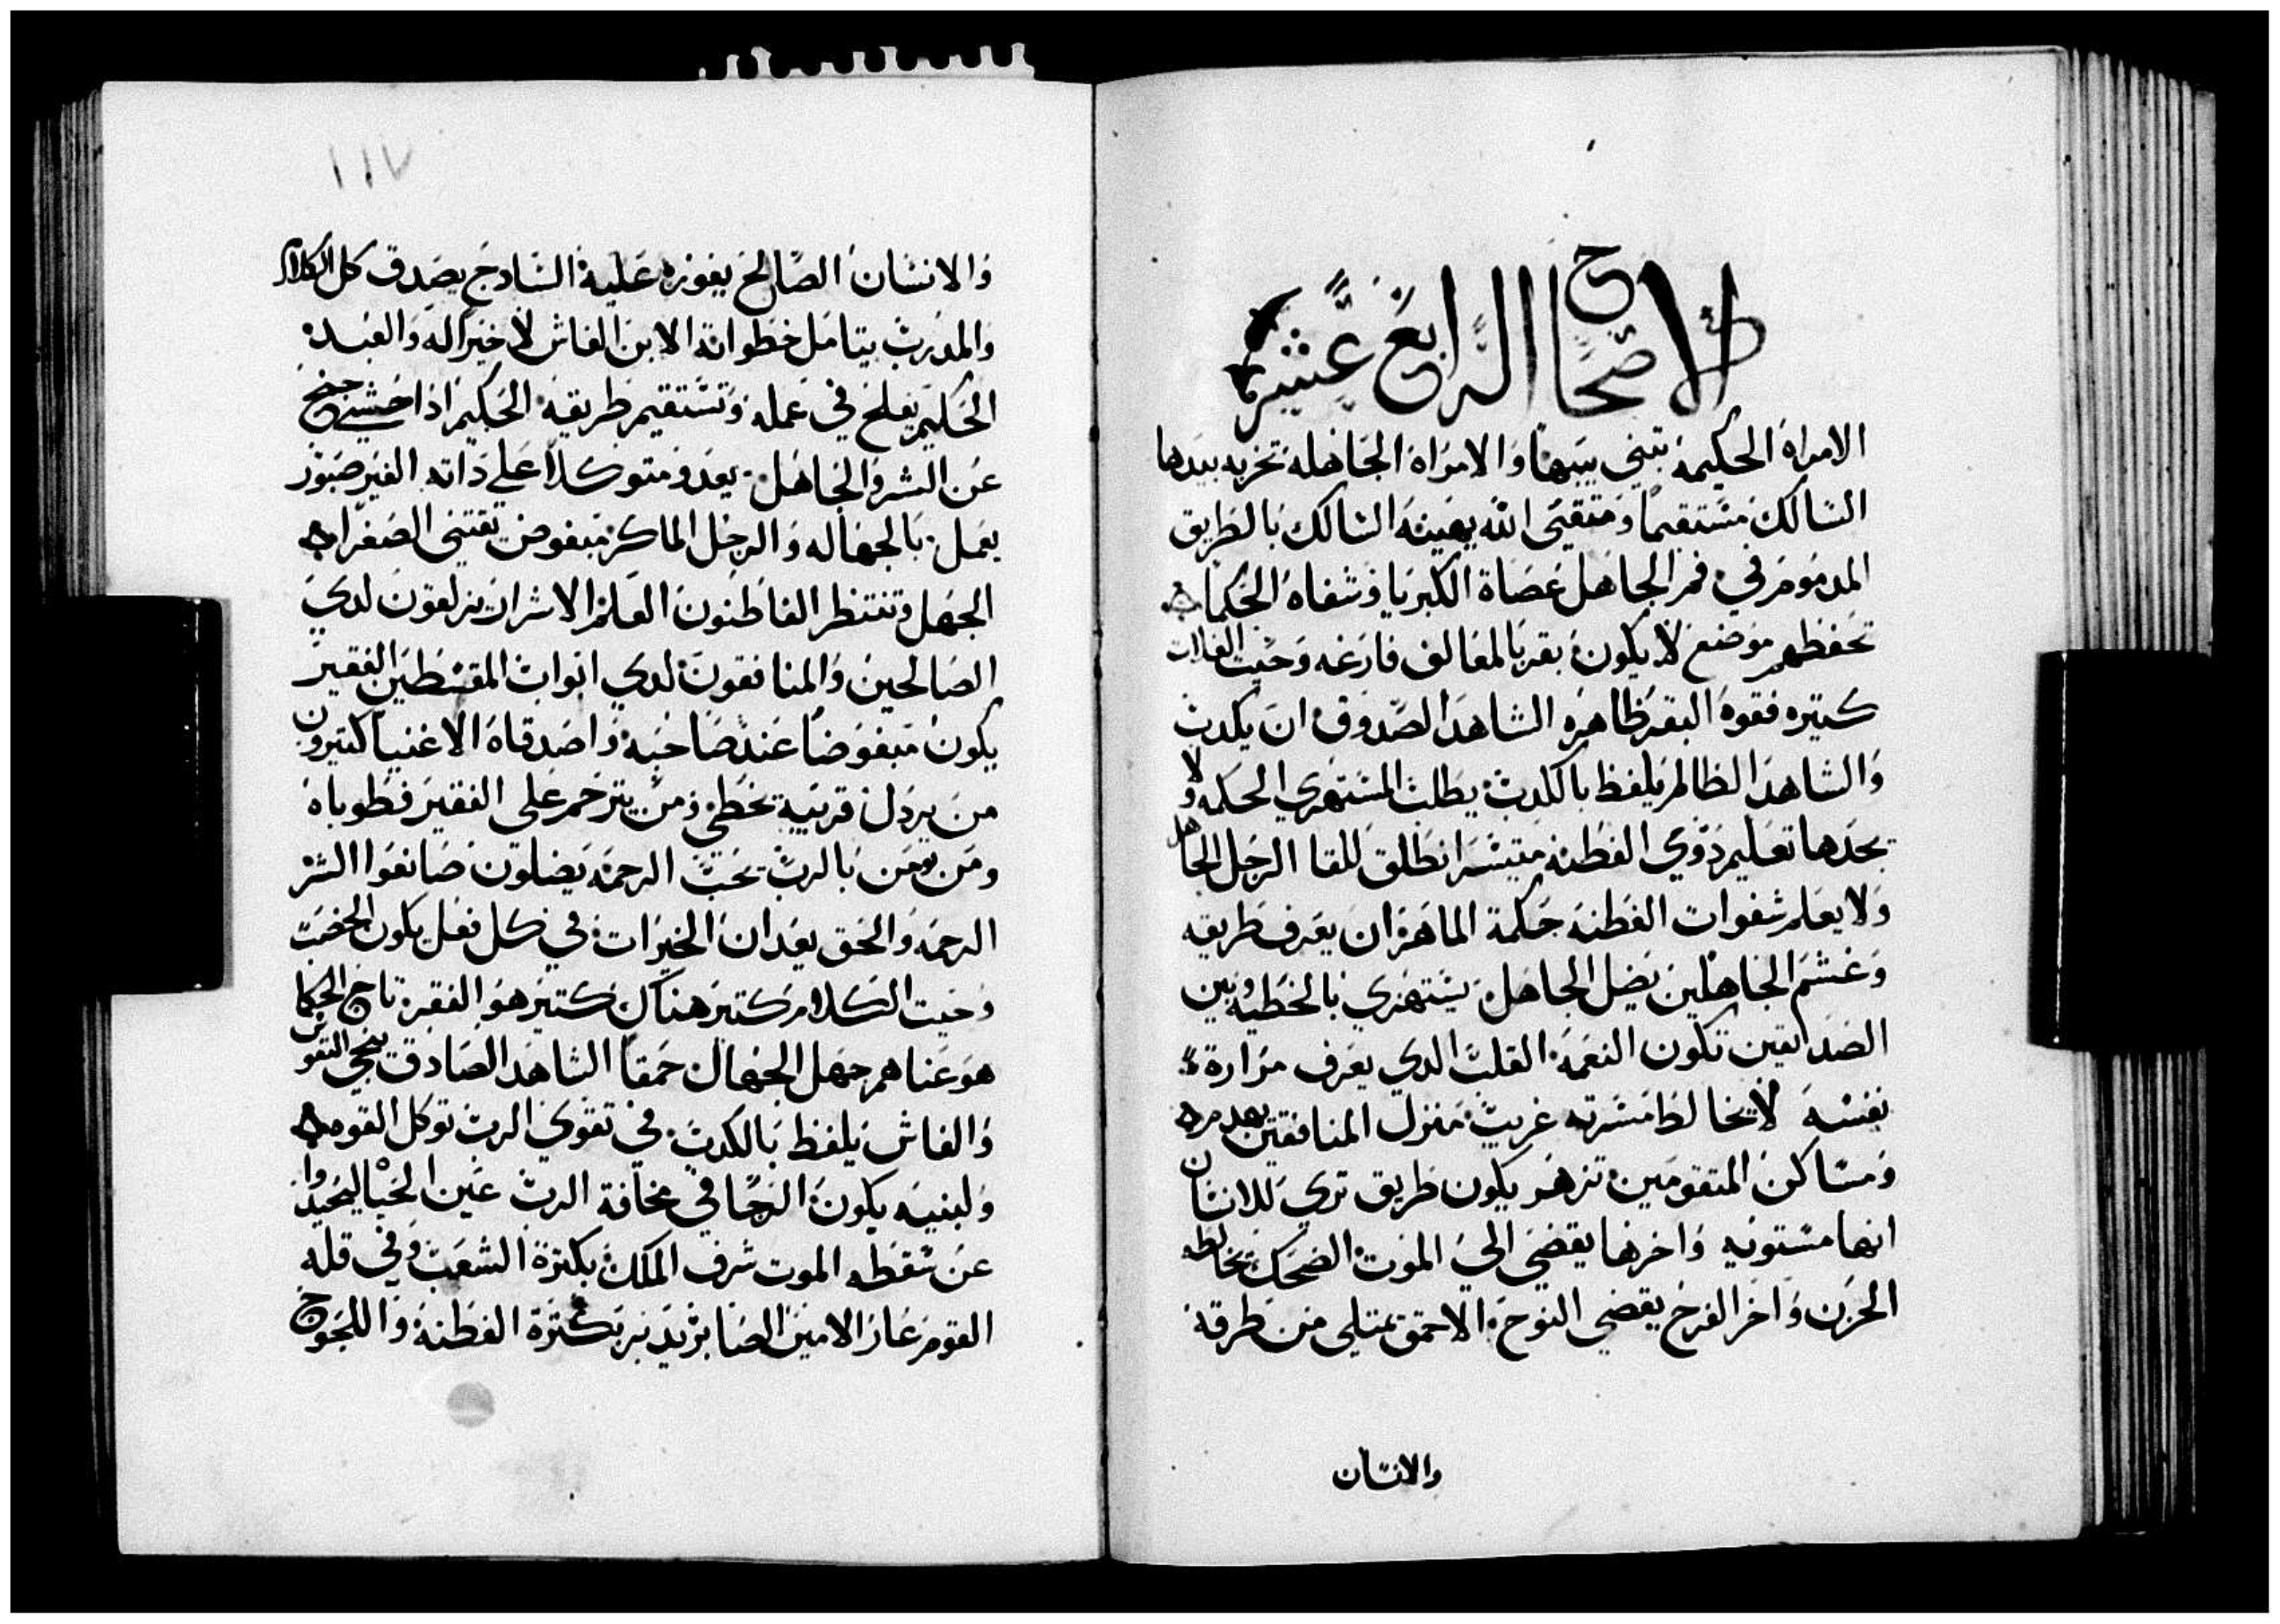 الاصحاح الرابع عشر
الامراة الحكيمة تبني بيتها والامراة الجاهلة تخربه بيدها
السالك مستقيما ومتقي الله يهينه السالك بالطريق
المدموم في فمر الجاهل عصاة الكبريا وشفاه الحكما
تحفظهم موضع لا يكون بقر بالمعالف فارغه وحيت الغلات
كتيره فقوة البقر ظاهره الشاهد الصدوق ان يكدب
والشاهد الظالم يلفظ بالكدب يطلب المستهزي الحكمه ولا
يجدها تعليم دوي الفطنه متيسرا نطلق للقا الرجل الجاهل
ولا يعلم شفوات الفطنه حكمة الماهر ان يعرف طريقه
وغشم الجاهلين يضل الجاهل يستهزي بالخطيه وبين
الصدايقين تكون النعمة القلب الدي يعرف مرارة
نفسه لا يخالط مسرته غريب منزل المنافقين يهدم
ومساكن المتقومين تزهر يكون طريق تري للانسان
انها مستويه واخرها يفضي الي الموت الضحك تخالطه
الحزن واخر الفرح يفضي النوح الاحمق يمتلي من طرقه
والانسان
١١٧
والانسان الصالح يفوزه عليه السادج يصدق كل الكلام
والمدرب يتامل خطواته الابن الغاش لا خير له والعبد
الحكيم يفلح في عمله وتستقيم طريقه الحكيم ادا خشي جنح
عن الشر والجاهل يعدو متوكلا علي داته الغير صبور
يعمل بالجهاله والرجل الماكر مبغوض تقتني الصغرا
الجهل وتنتظر الفاطنون العلم الاشرار يزلعون لدي
الصالحين والمنافقون لدي ابواب المقسطين الفقير
يكون مبغوضا عند صاحبه واصدقاه الاغنيا كتيرون
من يردل قريبه يخطي ومن يترحم علي الفقير فطوباه
ومن يومن بالرب يحب الرحمه يضلون صانعوا الشر
الرحمه والحق يعدان الخيرات في كل فعل يكون الخصب
وحيت الكلام كتير هناك كتير هو الفقر تاج الحكما
هو غناهم جهل الجهال حمقا الشاهد الصادق ينجي النفوس
والغاش يلفظ بالكدب في تقوي الرب توكل القوه
ولبنيه يكون الرجا في مخافة الرب عين الحيا ليحيدوا
عن سقطه الموت شرف الملك بكترة الشعب وفي قله
القوم عار الامين الصابر يدبر بكترة الفطنه واللجوج